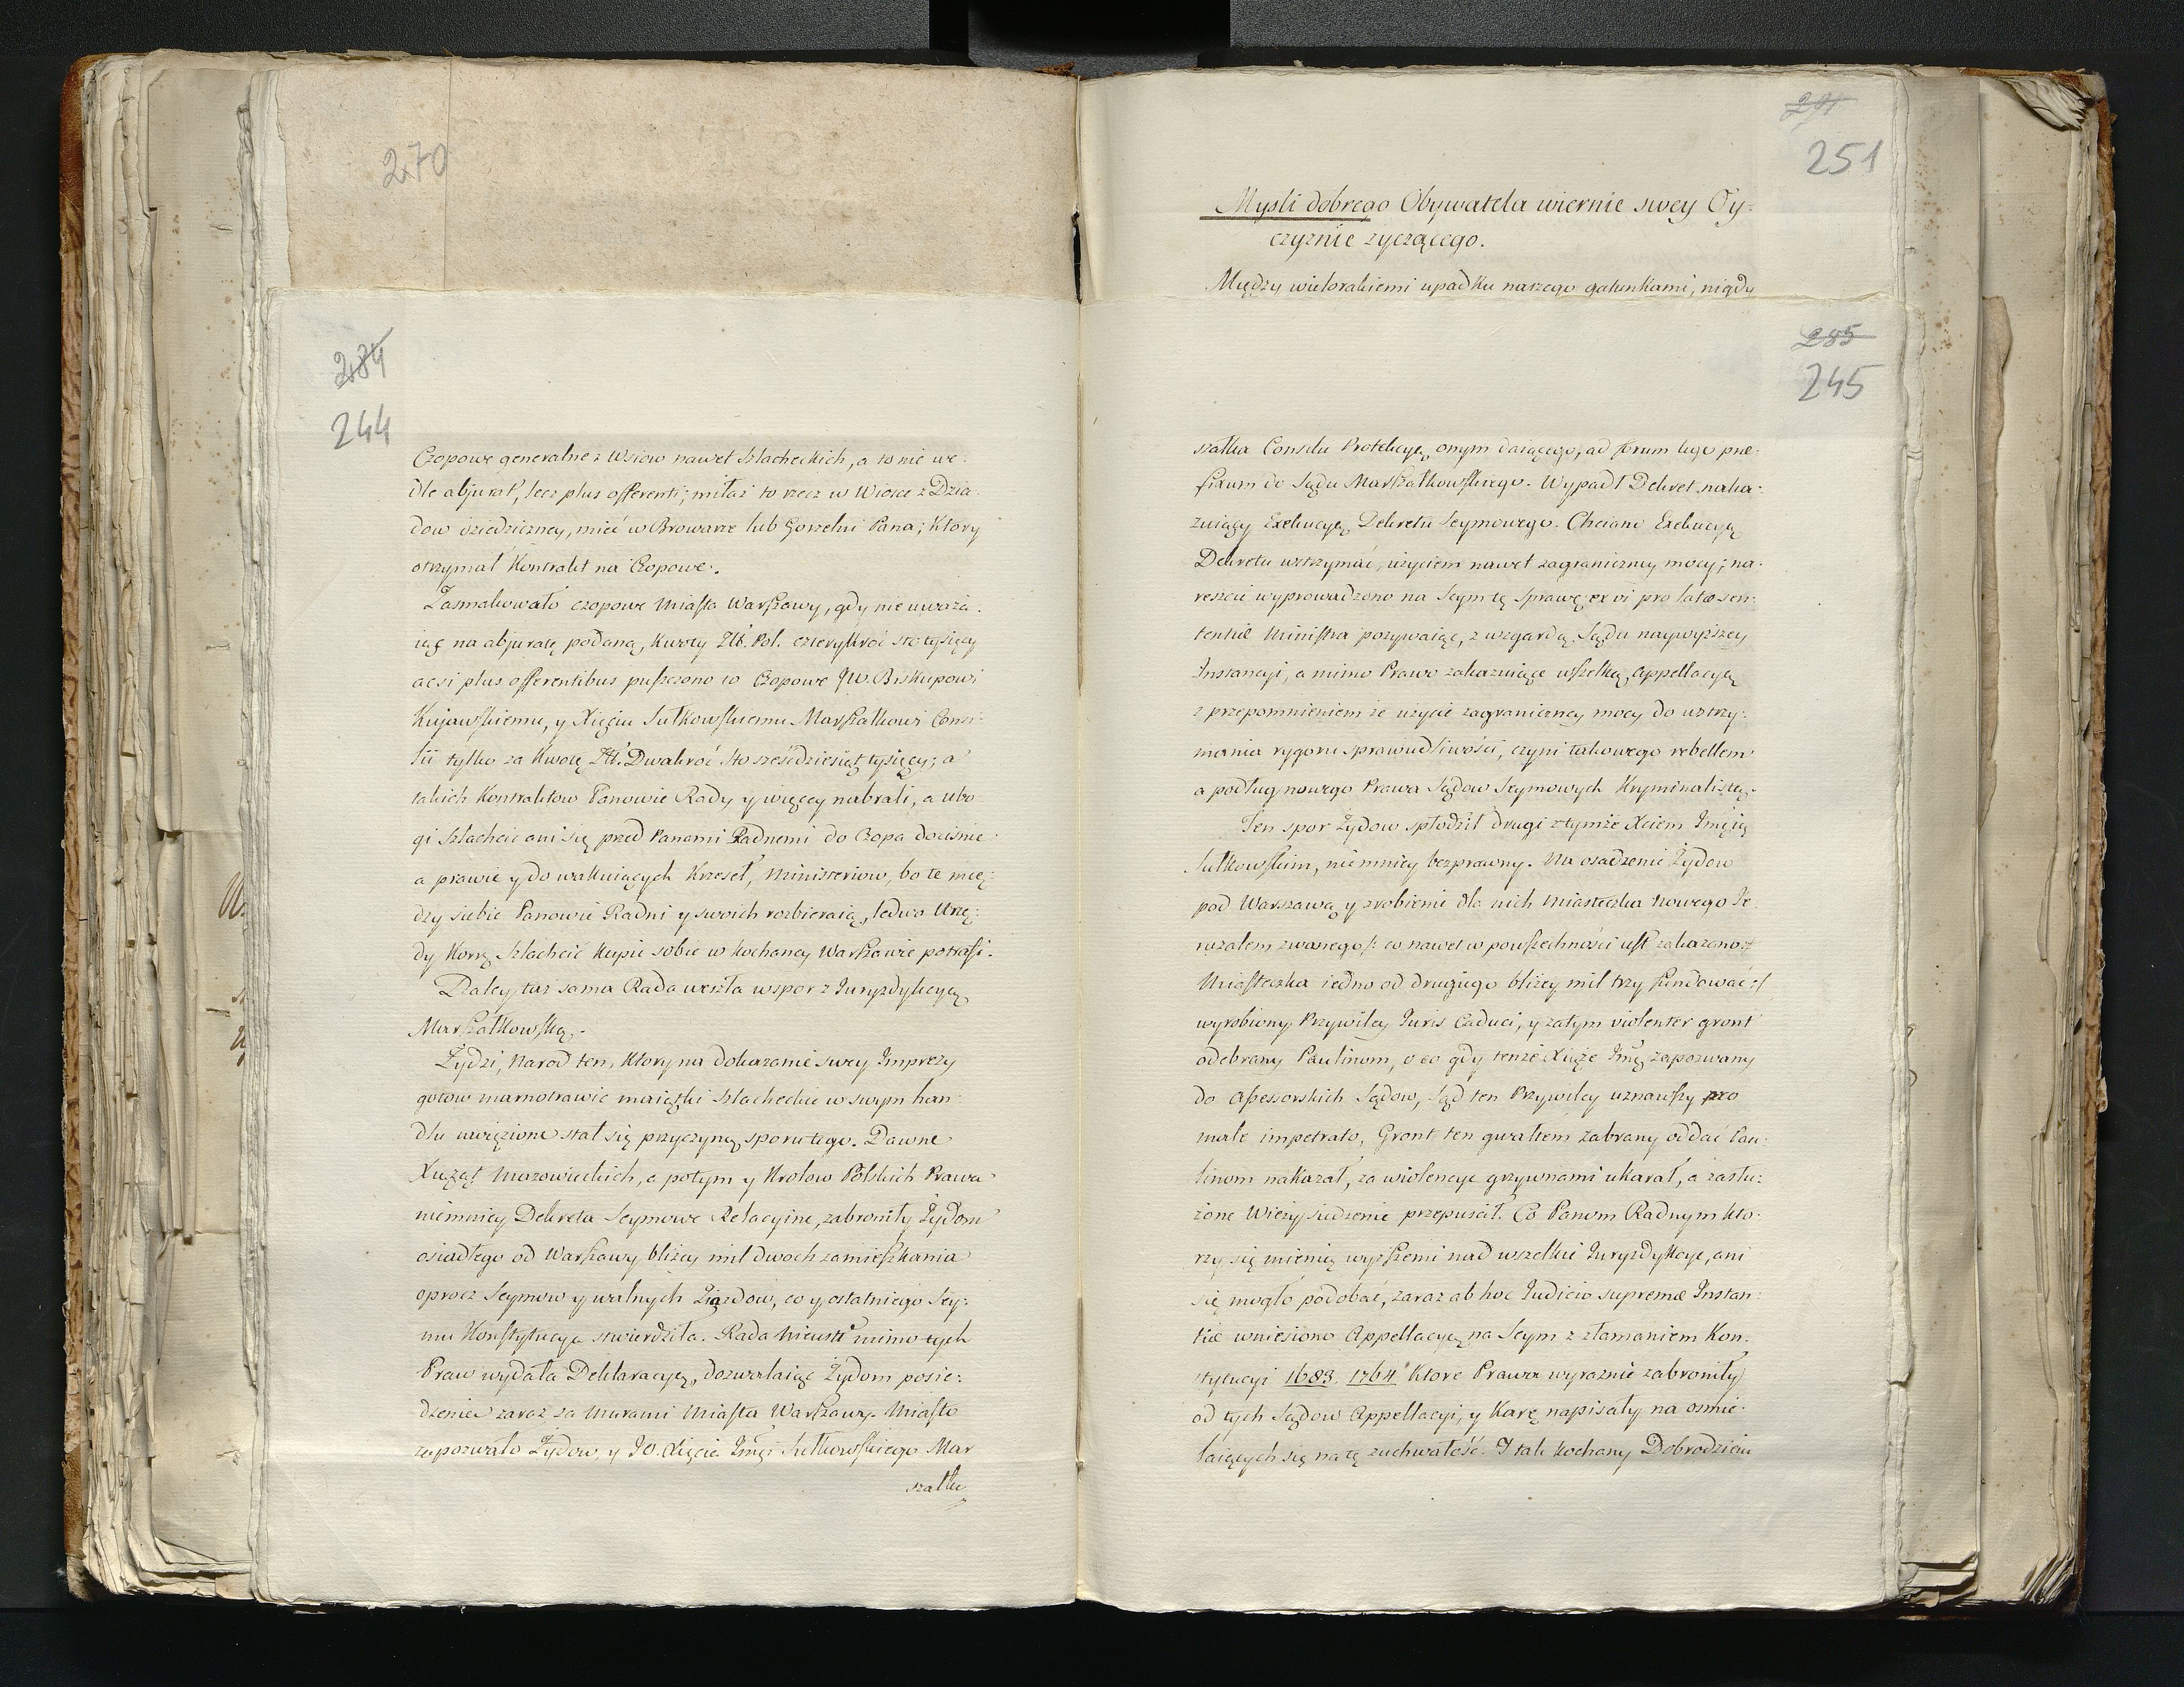 270
284
244
Czopowe generalne z Wsiow nawet Szlacheckich, a to nie we-
dle abjurat, lecz plus offerenti; miłaż to rzecz w Wiosce z Dzia-
dow dziedziczney, mieć w Browarze lub Gorzelni Pana; ktory
otrzymał Kontrakt na Czopowe.
Zasmakowało czopowe Miasta Warszawy, gdy nie uważa-
iąc na abjuratę podaną, kwoty Złł. Pol. czterykroć sto tysięcy
acsi plus offerentibus puszczono to Czopowe JW. Biskupowi
Kujawskiemu, y Xięciu Sułkowskiemu Marszałkowi Consi-
lii tylko za kwotę Złł. Dwakroć sto sześćdziesiąt tysięcy; a
takich Kontraktow Panowie Rady y więcey nabrali, a ubo-
gi Szlachcic ani się przed Panami Radnemi do Czopa dociśnie
a prawie y do wakuiących Krzeseł, Ministeriow, bo te mię-
dzy siebie Panowie Radni y swoich rozbieraią, ledwo Urzę-
dy Korrę Szlachcic kupic sobie w kochaney Warszawie potrafi.
Daley taż sama Rada weszła w spor z Juryzdykcyą
Marszałkowską.
Żydzi, Narod ten, ktory na dokazanie swey Imprezy
gotow marnotrawic maiątki Szlacheckie w swym han-
dlu uwięzione stał się przyczyną sporu tego. Dawne
Xiążąt Mazowieckich, a potym y Krolow Polskich Prawa
niemniey Dekreta Seymowe Relacyine, zabroniły Żydom
osiadłego od Warszawy bliżey mil dwoch zamieszkania
oprocz Seymow y walnych Ziazdow, co y ostatniego Sey-
mu Konstytucya stwierdziła. Rada Nieust: mimo tych
Praw wydała Deklaracyą, dozwalaiąc Żydom posie-
dzenia zaraz za Murami Miasta Warszawy. Miasto
zapozwało Żydow, y JO. Xięcia Jmci Sułkowskiego Mar
szałka
291
251
Mysli dobrego Obywatela wiernie swey Oy-
czyznie zyczącego.
Między wielorakiemi upadku naszego gatunkami, nigdy
285
245
szałka Consilii Protekcyę onym daiącego, ad forum tego prae-
fixum do Sądu Marszałkowskiego. Wypadł Dekret naka-
zuiący Exekucyą Dekretu Seymowego. Chciano Exekucyą
Dekretu wstrzymać, użyciem nawet zagraniczney mocy; na-
reszcie wyprowadzono na Seym tę Sprawę; ex vi pro latae sen-
tentiae Ministra pozywaiąc, z wzgardą Sądu naywyższey
Instancyi, a mimo Prawo zakazuiące wszelką Appellacyą
z przepomnieniem że użycie zagraniczney mocy do wstrzy-
mania rygoru sprawiedliwości, czyni takowego rebellem
a podług nowego Prawa Sądow Seymowych Kryminalistą.
Ten spor Żydow spłodził drugi z tymże Xciem Jmcią
Sułkowskim, niemniey bezprawny. Na osadzenie Żydow
pod Warszawą y zrobienie dla nich Miasteczka Nowego Je-
ruzalem zwanego /: co nawet w powszechności iest zakazano:
Miasteczka iedno od drugiego bliżey mil trzy fundować :/
wyrobiony Przywiley Juris Caduci, y zatym violenter gront
odebrany Paulinom, o co gdy tenże Xiąże Jmć zapozwany
do Assessorskich Sądow, Sąd ten Przywiley uznawszy pro
male impetrato, Gront ten gwałtem zabrany oddać Pau-
linom nakazał, za wiolencye grzywnami ukarał, a zasłu-
żone Wieży siedzenie przepuścił. Co Panom Radnym kto-
rzy się mienią wyższemi nad wszelkie Juryzdykcye, ani
się mogło podobać, zaraz ab hoc Judicio supremae Instan-
tiae wniesiono Appellacyą na Seym z złamaniem Kon-
stytucyi 1683. 1764. Ktore Prawa wyraznie zabroniły
od tych Sądow Appellacyi, y karę napisały na osmie-
laiących się na tę zuchwałość. I tak kochany Dobrodzieiu